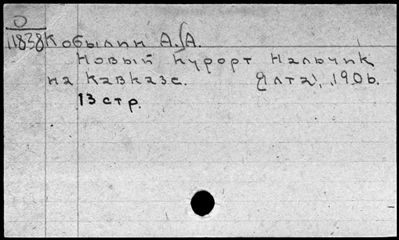 О
11838 Кобылин А.А.
Новый курорт Нальчик
на Кавказе. Ялта, 1906.
13 стр.